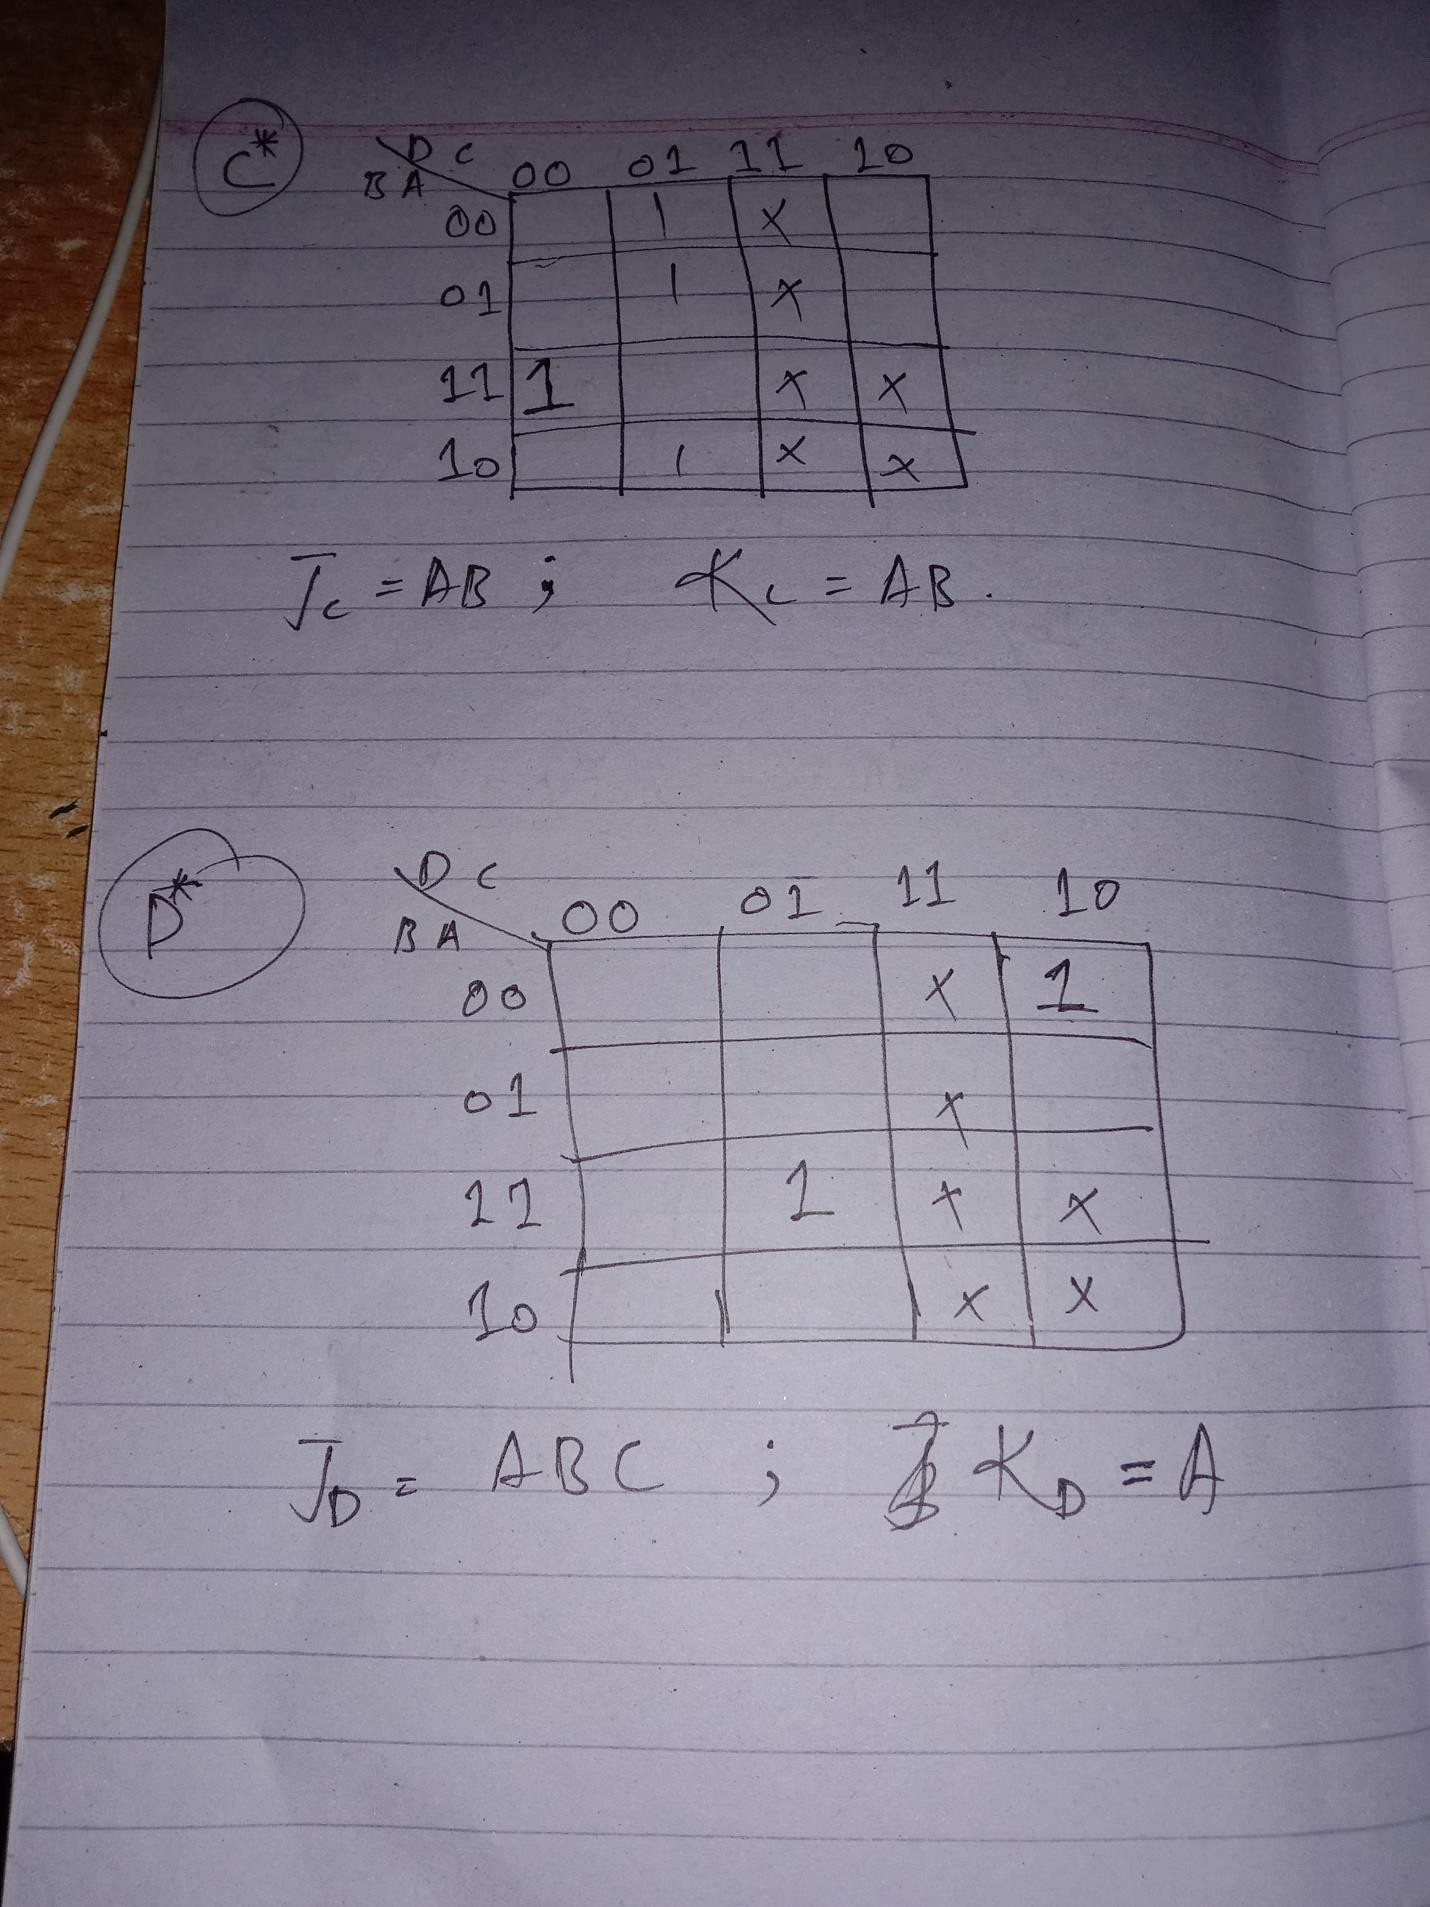 C*
D C
B A
00 01 11 10
00 1 X
01 1 X
11 1 X X
10 1 X X
J_C = AB ; K_C = AB.
D*
D C
B A
00 01 11 10
00 X 1
01 X
11 1 X X
10 X X
J_D = ABC ; K_D = A